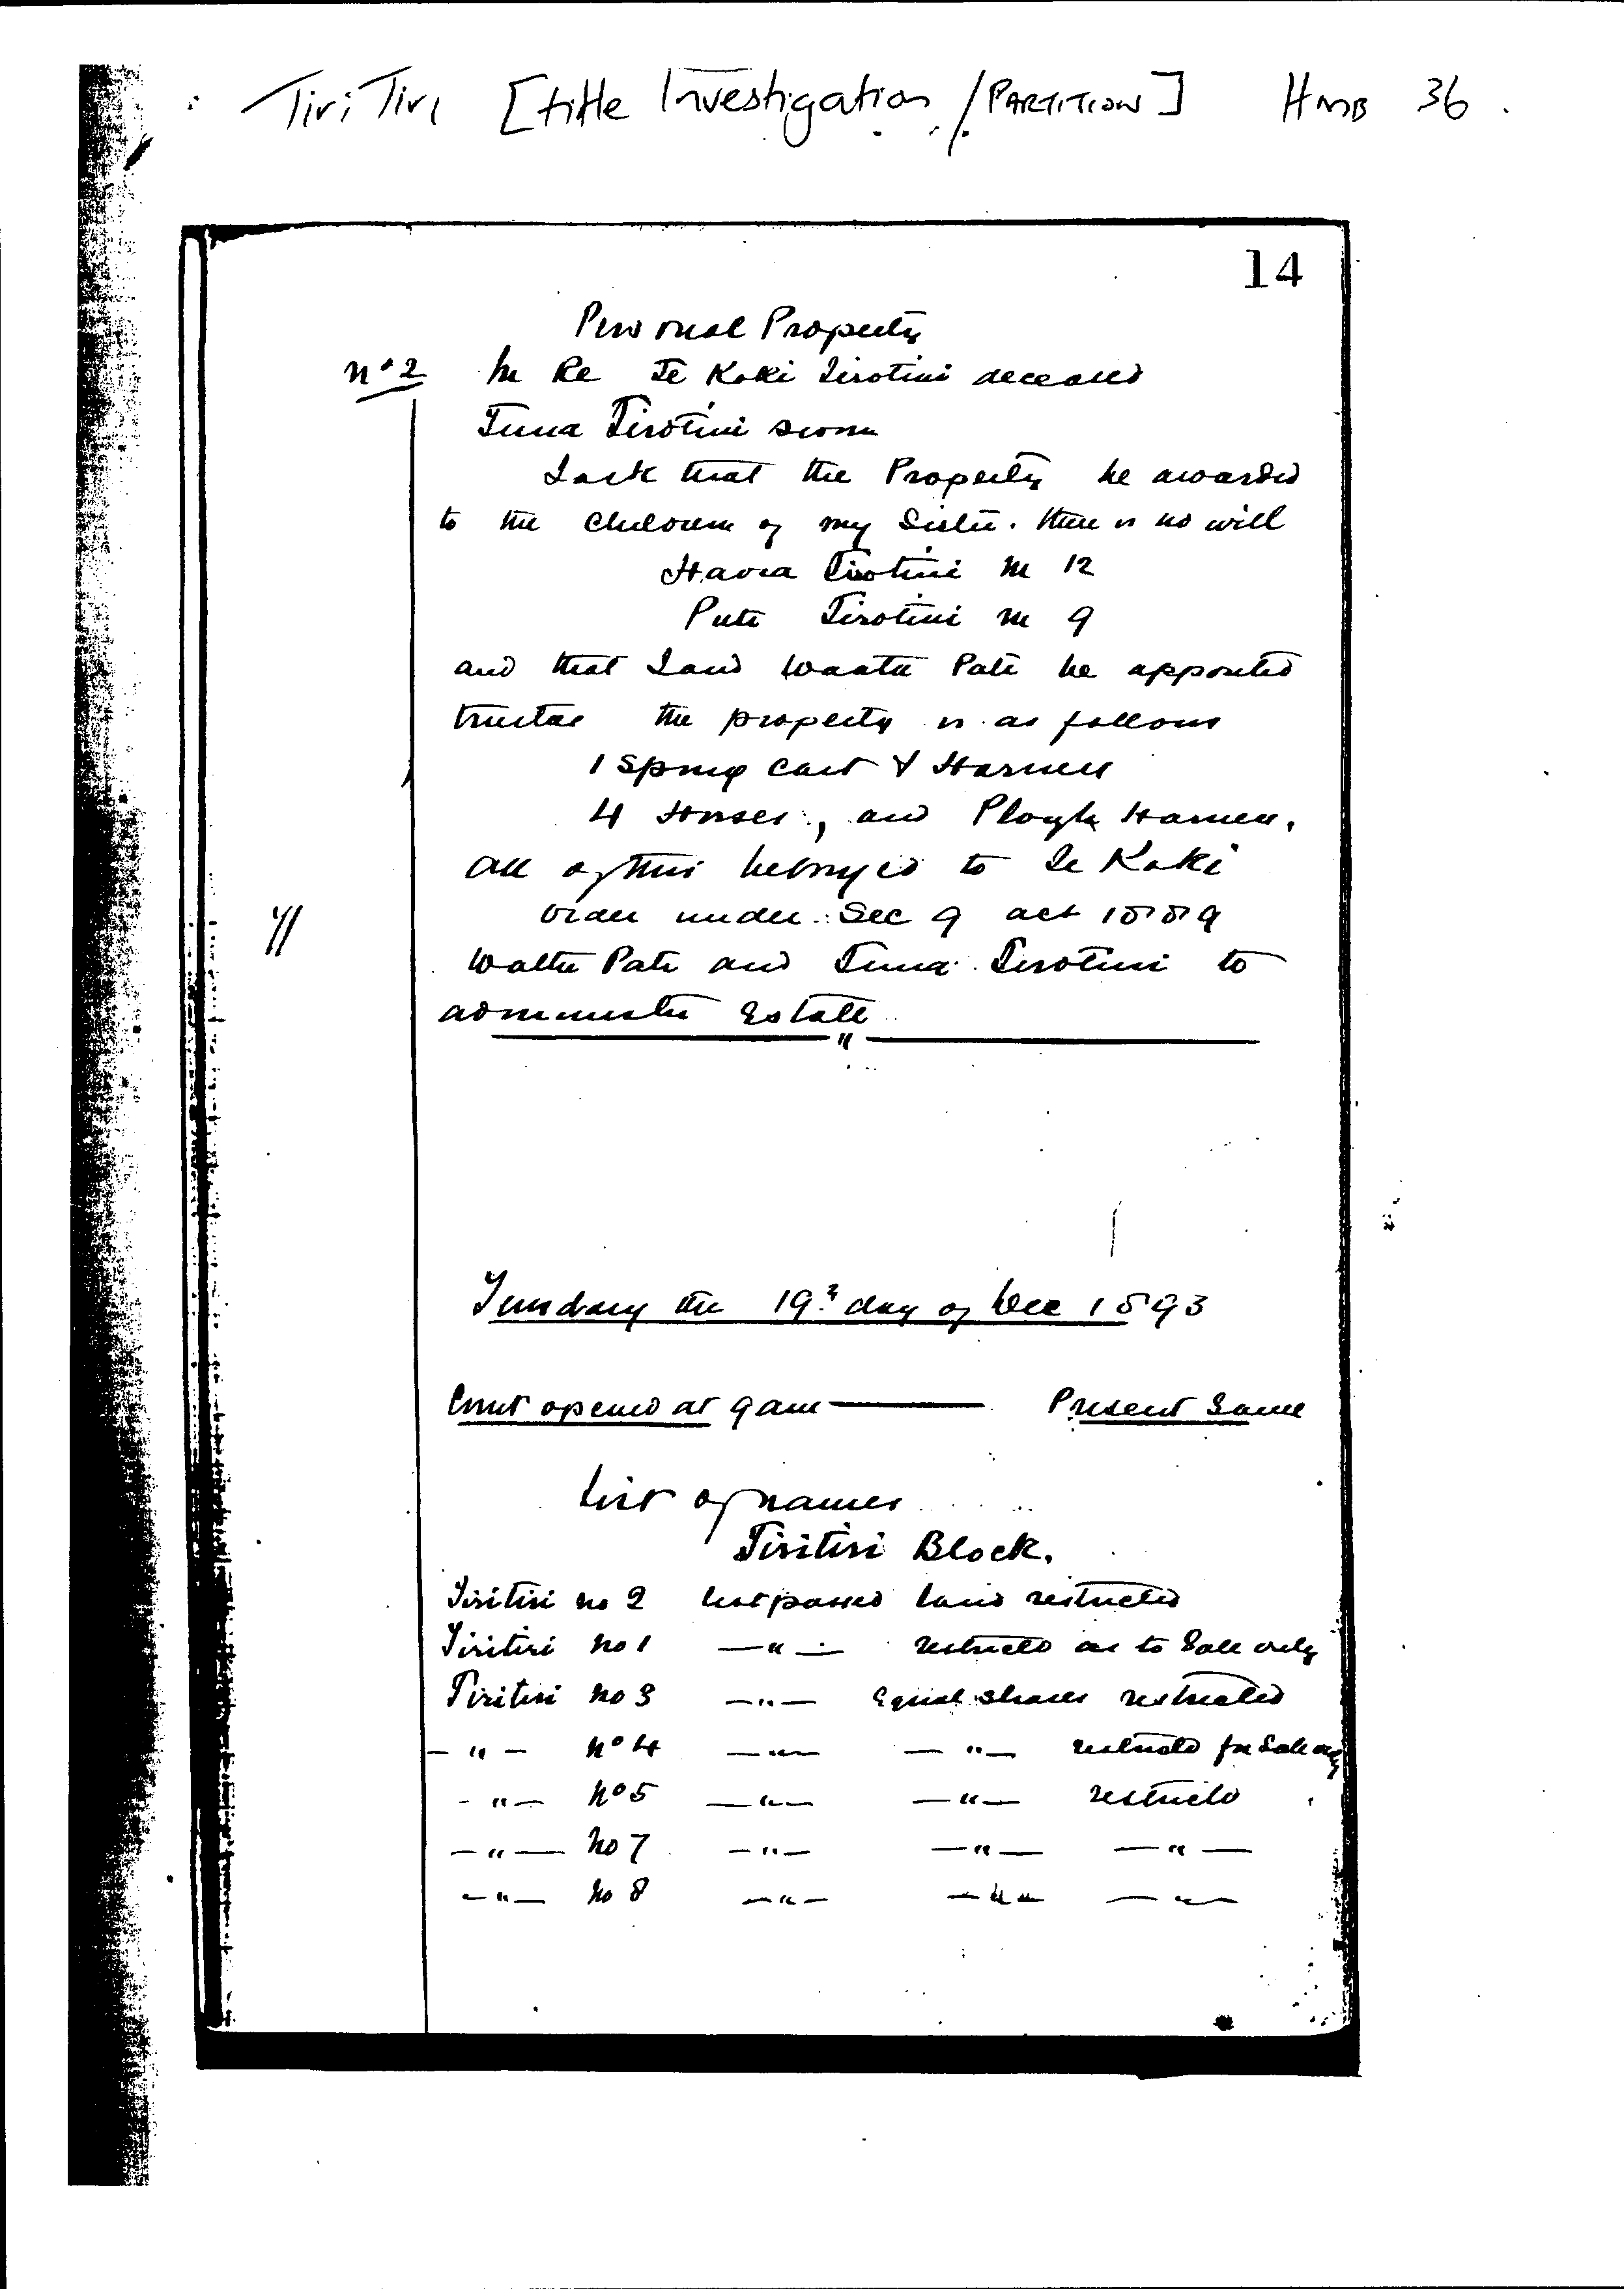 Tiri Tiri [title Investigation / PARTITION] HMB 36.
14
Personal Property
No 2 In Re Te Koki Tirotini deceased
Tuna Tirotini sworn
I ask that the Property be awarded
to the children of my Sister. there is no will
Tirotini M 12
Pute Tirotini M 9
and that Pate be appointed
trustee the property is as follows
1 Spring Cart & Harness
4 Horses, and Plough Harness.
all of this belonged to Te Koki
Order under Sec 9 act 1889
Pate and Tuna Tirotini to
administer Estate
"
Tuesday the 19th day of Dec 1893
Court opened at 9 am — Present Same
List of names
Tiritiri Block.
Tiritiri no 2 List passed land restricted
Tiritiri no 1 —"— restricted as to Sale only
Tiritiri no 3 —"— Equal shares restricted
—"— No 4 —"— —"— restricted for Sale only
—"— No 5 —"— —"— restricted
—"— No 7 —"— —"— —"—
—"— No 8 —"— —"— —"—